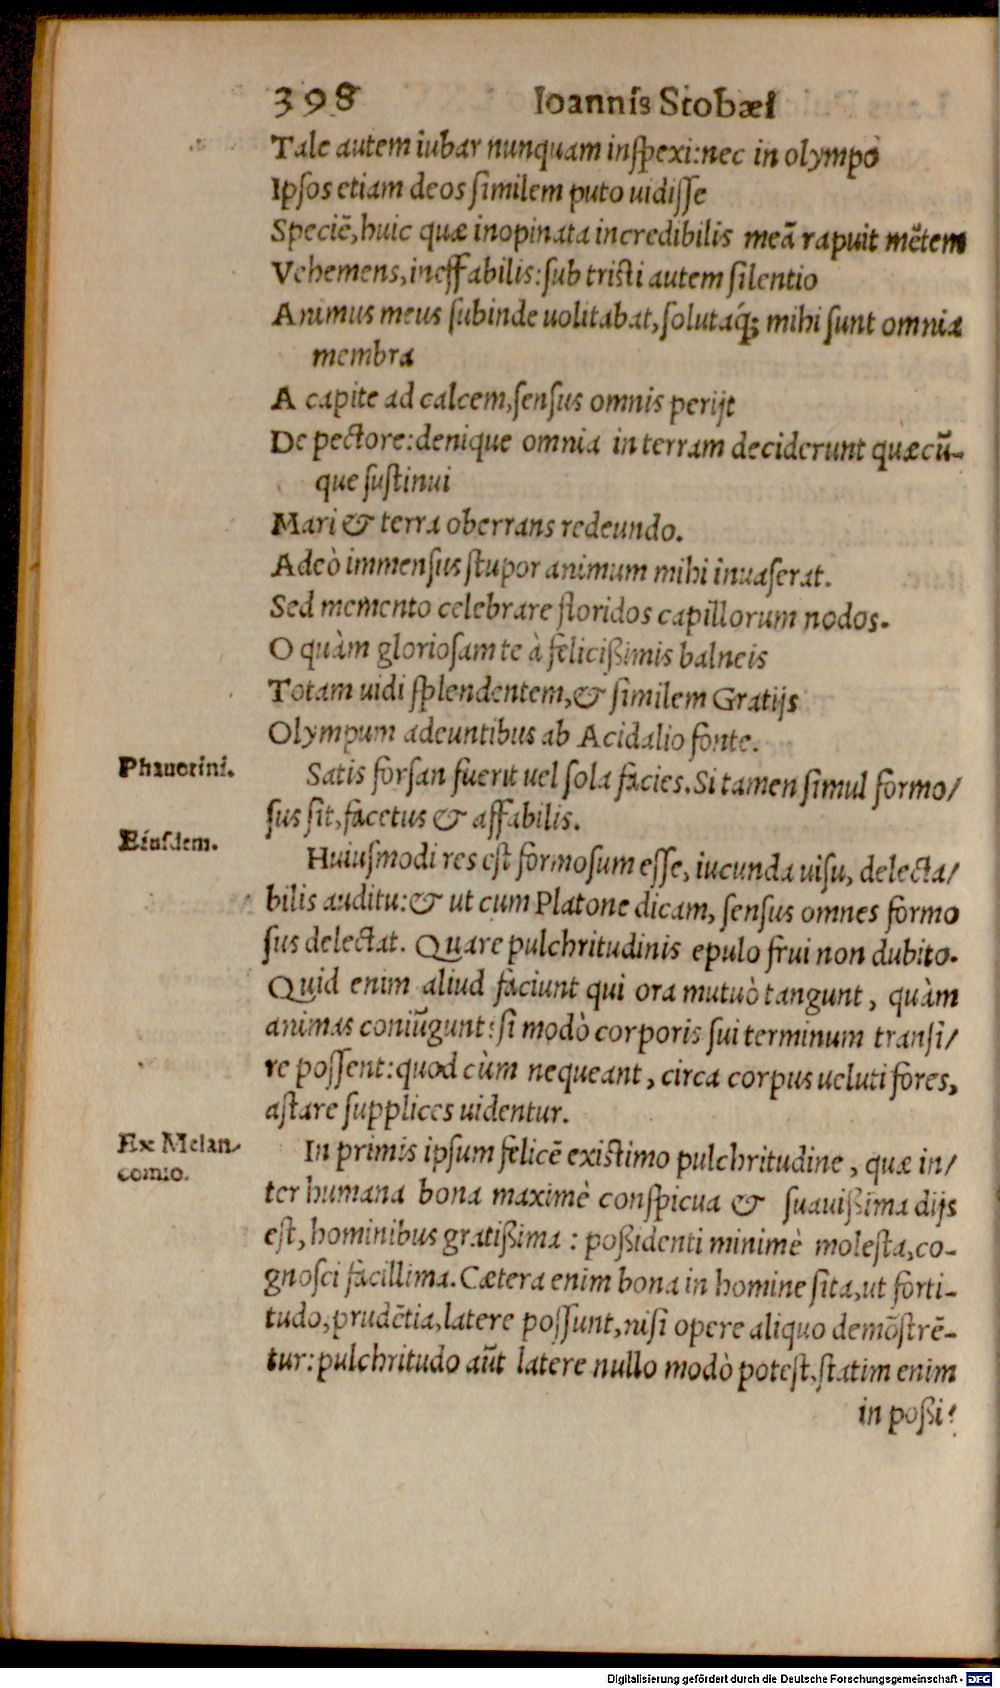 398 Ioannis Stobæi
Tale autem iubar nunquam inspexi:nec in olympo
Ipsos etiam deos similem puto uidisse
Speciē, huic quæ inopinata incredibilis meā rapuit mētem
Vehemens, ineffabilis: sub tristi autem silentio
Animus meus subinde uolitabat, solutaq́; mihi sunt omnia
membra
A capite ad calcem, sensus omnis perijt
De pectore: denique omnia in terram deciderunt quæcū-
que sustinui
Mari & terra oberrans redeundo.
Adeò immensus stupor animum mihi inuaserat.
Sed memento celebrare floridos capillorum nodos.
O quàm gloriosam te à felicißimis balneis
Totam uidi splendentem, & similem Gratijs
Olympum adeuntibus ab Acidalio fonte.
Phauorini.
Satis forsan fuerit uel sola facies. Si tamen simul formo/
sus sit, facetus & affabilis.
Eiusdem.
Huiusmodi res est formosum esse, iucunda uisu, delecta/
bilis auditu: & ut cum Platone dicam, sensus omnes formo
sus delectat. Quare pulchritudinis epulo frui non dubito.
Quid enim aliud faciunt qui ora mutuò tangunt, quàm
animas coniūgunt: si modò corporis sui terminum transi/
re possent: quod cùm nequeant, circa corpus ueluti fores,
astare supplices uidentur.
Ex Melan-
comio.
In primis ipsum felicē existimo pulchritudine, quæ in/
ter humana bona maximè conspicua & suauißima dijs
est, hominibus gratißima: poßidenti minimè molesta, co-
gnosci facillima. Cætera enim bona in homine sita, ut forti-
tudo, prudētia, latere possunt, nisi opere aliquo demōstrē-
tur: pulchritudo aūt latere nullo modò potest, statim enim
in poßi/
Digitalisierung gefördert durch die Deutsche Forschungsgemeinschaft - DFG